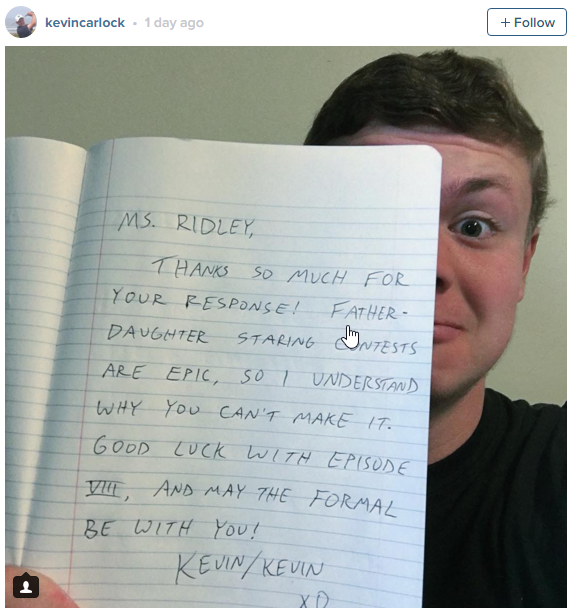 kevincarlock • 1 day ago
+ Follow
MS. RIDLEY,
THANKS SO MUCH FOR
YOUR RESPONSE! FATHER-
DAUGHTER STARING CONTESTS
ARE EPIC, SO I UNDERSTAND
WHY YOU CAN'T MAKE IT.
GOOD LUCK WITH EPISODE
VIII, AND MAY THE FORMAL
BE WITH YOU!
KEVIN/KEVIN
XO